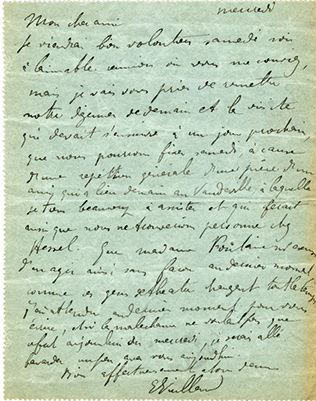 mercredi
Mon cher ami
Je viendrai bon volontiers samedi soir
à l'aimable réunion où vous me conviez,
mais je vais vous prier de remettre
notre déjeuner de demain et la visite
qui devait s'ensuivre à un jour prochain,
que nous pourrons fixer samedi à cause
d'une répétition générale d'une pièce d'un
ami, qui a lieu demain au Vaudeville à laquelle
je tiens beaucoup à assister et qui ferait
ainsi que nous ne trouverions personne chez
Hessel. Que madame m'excuse
d'en agir ainsi sans façon au dernier moment
comme ces gens de théâtre changent
j'ai attendu au dernier moment pour vous
écrire, et si la malechance ne voulait pas que
ce fut aujourd'hui mercredi, je serais allé
bavarder un peu avec vous aujourd'hui
Bien affectueusement à votre
EVuillard